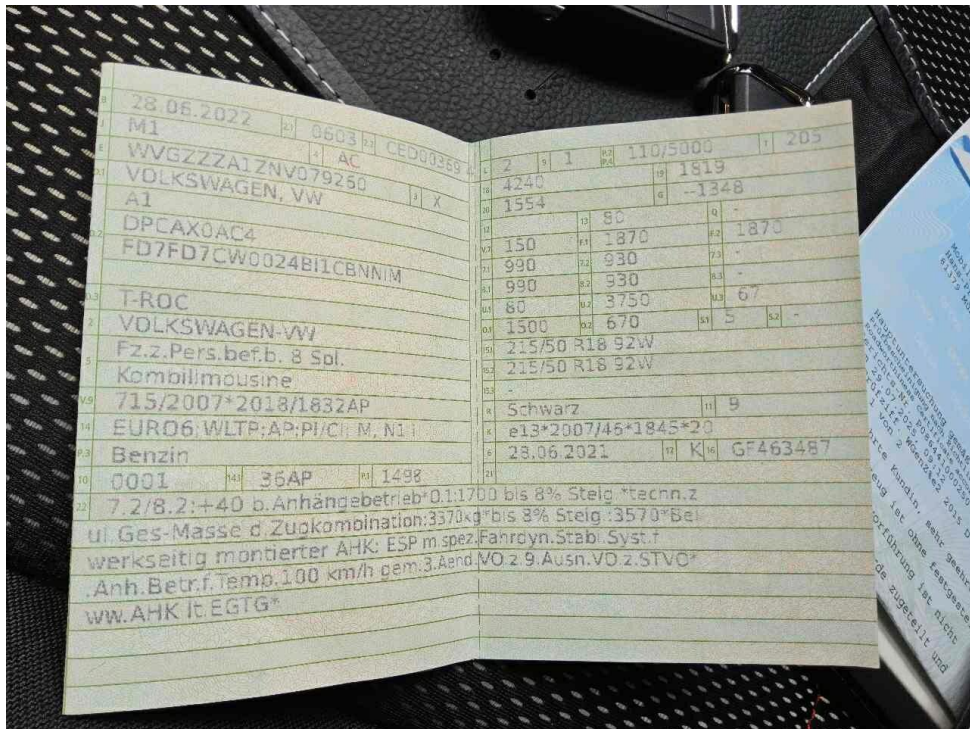 B 28.06.2022 2.1 0603 2.2 CED00369 4
J M1 4 AC
E WVGZZZA1ZNV079260 3 X
D.1 VOLKSWAGEN, VW
A1
D.2 DPCAX0AC4
FD7FD7CW0024BI1CBNNIM
D.3 T-ROC
2 VOLKSWAGEN-VW
5 Fz.z.Pers.bef.b. 8 Spl.
Kombilimousine
V.9 715/2007*2018/1832AP
14 EURO6; WLTP;AP;PI/CI; M, N1 I
P.3 Benzin
10 0001 14.1 36AP P.1 1498
L 2 9 1 P.2 P.4 110/5000 T 205
18 4240 19 1819
20 1554 G --1348
12 13 80 Q -
V.7 150 F.1 1870 F.2 1870
7.1 990 7.2 930 7.3 -
8.1 990 8.2 930 8.3 -
U.1 80 U.2 3750 U.3 67
O.1 1500 O.2 670 S.1 5 S.2 -
15.1 215/50 R18 92W
15.2 215/50 R18 92W
15.3 -
R Schwarz 11 9
K e13*2007/46*1845*20
6 28.06.2021 17 K 16 GF463487
21
22 7.2/8.2:+40 b.Anhängebetrieb*O.1:1700 bis 8% Steig.*techn.z
ul.Ges-Masse d.Zugkombination:3370kg*bis 8% Steig.:3570*Bei
werkseitig montierter AHK: ESP m.spez.Fahrdyn.Stabi.Syst.f
.Anh.Betr.f.Temp.100 km/h gem.3.Aend.VO.z.9.Ausn.VO.z.STVO*
ww.AHK lt.EGTG*
Hauptuntersuchung gemäß
29.07.2025 09:12
1 von 2
hrte Kundin, sehr geehr
eug ist ohne festgeste
orführung ist nicht
de zugeteilt und